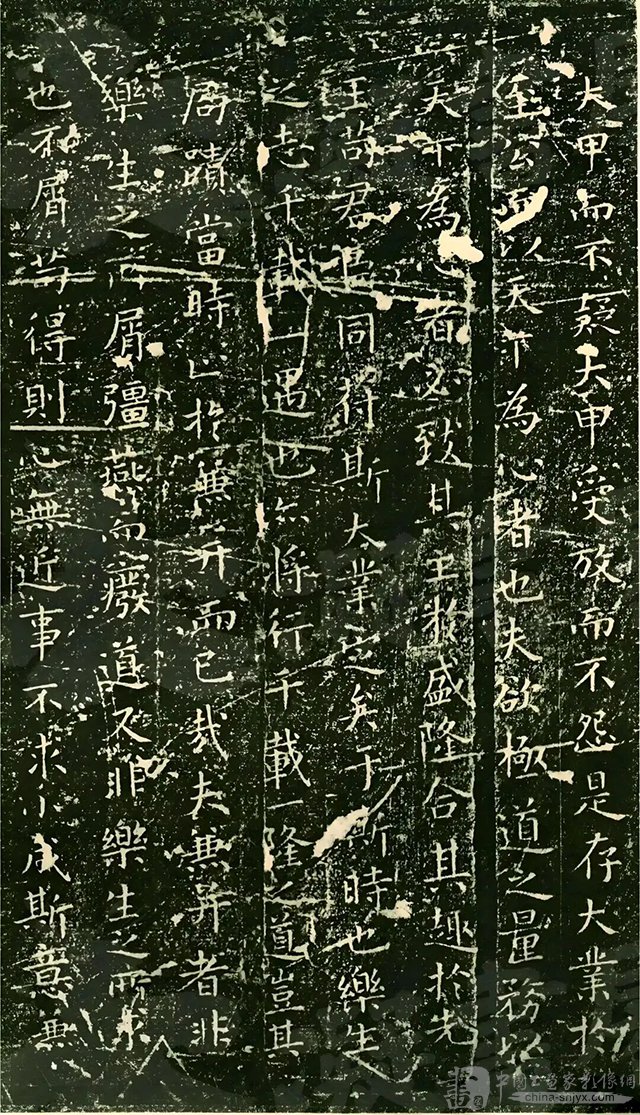 大甲而不疑大甲受放而不怨是存大業於
至公而以天下為心者也夫欲極道之量務以
天下為心者必致其主於盛隆合其趣於先
王苟君臣同符斯大業定矣于斯時也樂生
之志千載一遇也亦將行千載一隆之道豈其
局蹟當時止於兼并而已哉夫兼并者非
樂生之所屑彊燕而廢道又非樂生之所求
也不屑苟得則心無近事不求小成斯意兼
書
中國書畫家影像網
china-snjyx.com